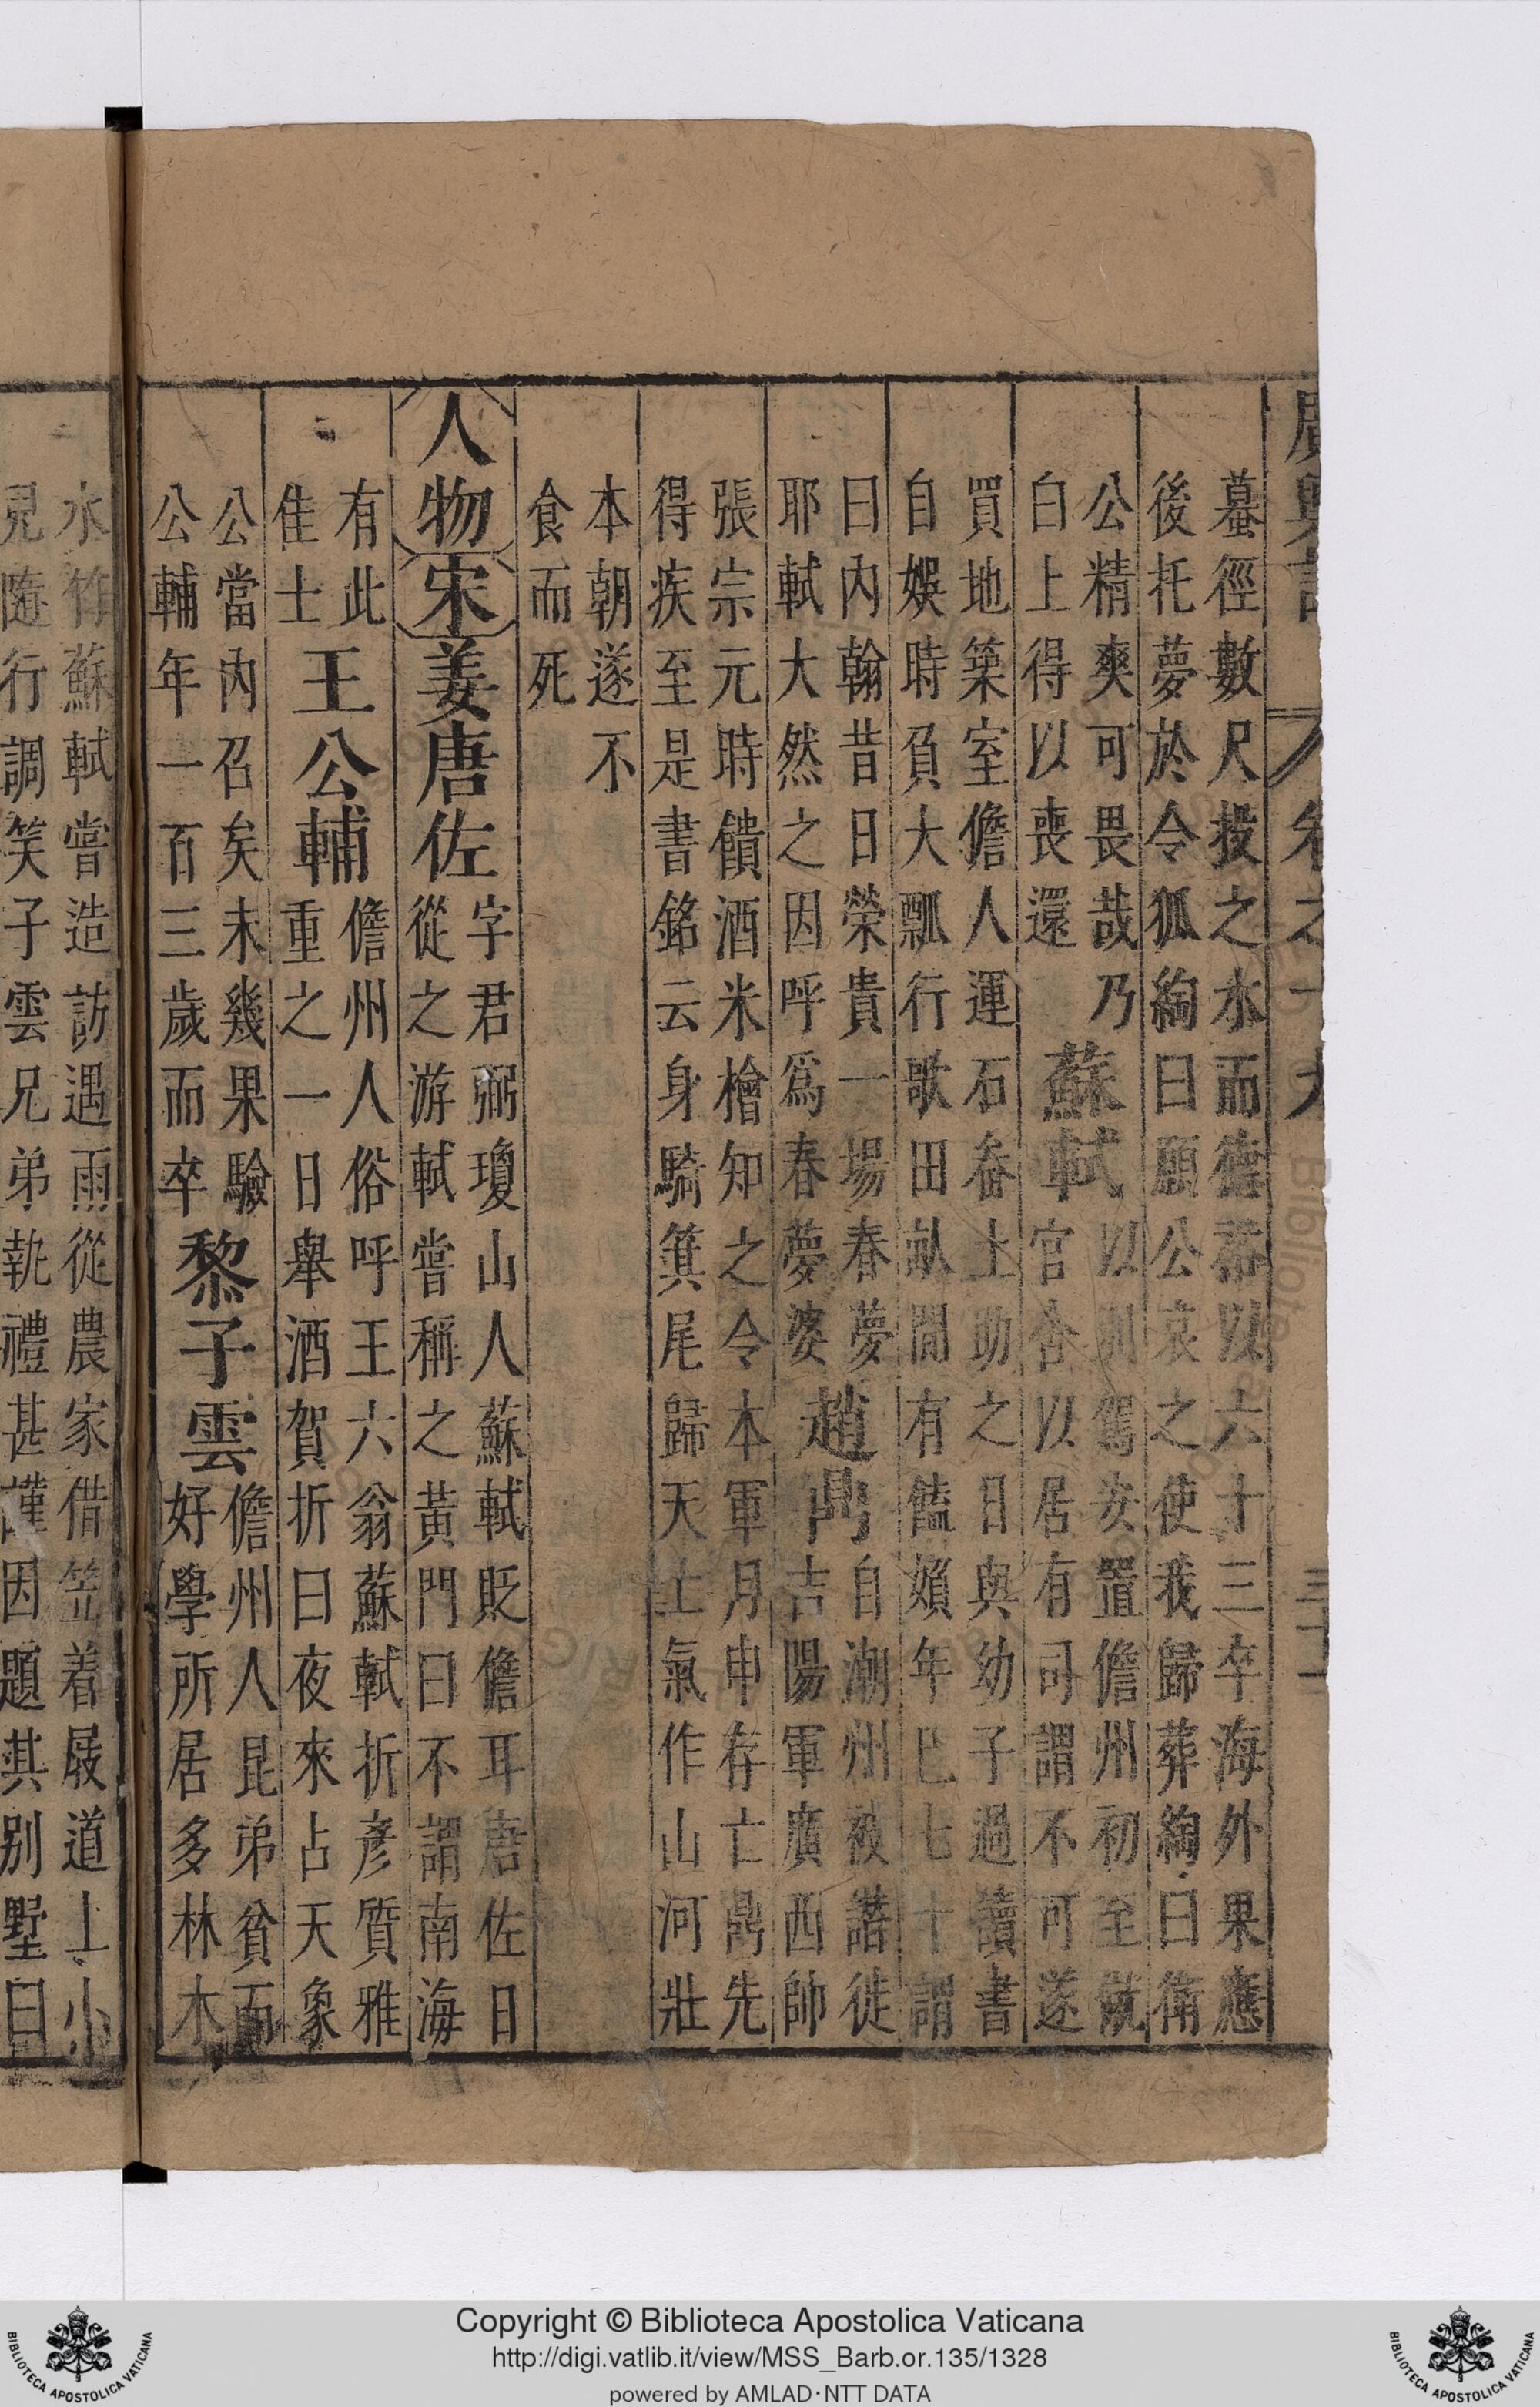 廣輿記 卷之十九 三十一
蟇徑數尺投之水而德裕以六十三卒海外果應
後托夢於令狐綯曰願公哀之使我歸葬綯曰衛
公精爽可畏哉乃
白上得以喪還
蘇軾
以別駕安置儋州初至僦
官舍以居有司謂不可遂
買地築室儋人運石畚土助之日與幼子過讀書
自娛時負大瓢行歌田畝間有饁媍年已七十謂
曰內翰昔日榮貴一場春夢
耶軾大然之因呼爲春夢婆
趙鼎
自潮州被譖徙
吉陽軍廣西帥
張宗元時饋酒米檜知之令本軍月申存亡鼎先
得疾至是書銘云身騎箕尾歸天上氣作山河壯
本朝遂不
食而死
人物 宋 姜唐佐
字君弼瓊山人蘇軾貶儋耳唐佐日
從之游軾嘗稱之黃門曰不謂南海
有此
隹士
王公輔
儋州人俗呼王六翁蘇軾折彥質雅
重之一日舉酒賀折曰夜來占天象
公當內召矣未幾果驗
公輔年一百三歲而卒
黎子雲
儋州人昆弟貧而
好學所居多林木
水竹蘇軾嘗造訪遇雨從農家借笠着屐道上小
見隨行調笑子雲兄弟執禮甚謹因題其别墅曰
Copyright © Biblioteca Apostolica Vaticana
http://digi.vatlib.it/view/MSS_Barb.or.135/1328
powered by AMLAD·NTT DATA
BIBLIOTECA APOSTOLICA VATICANA
BIBLIOTECA APOSTOLICA VATICANA